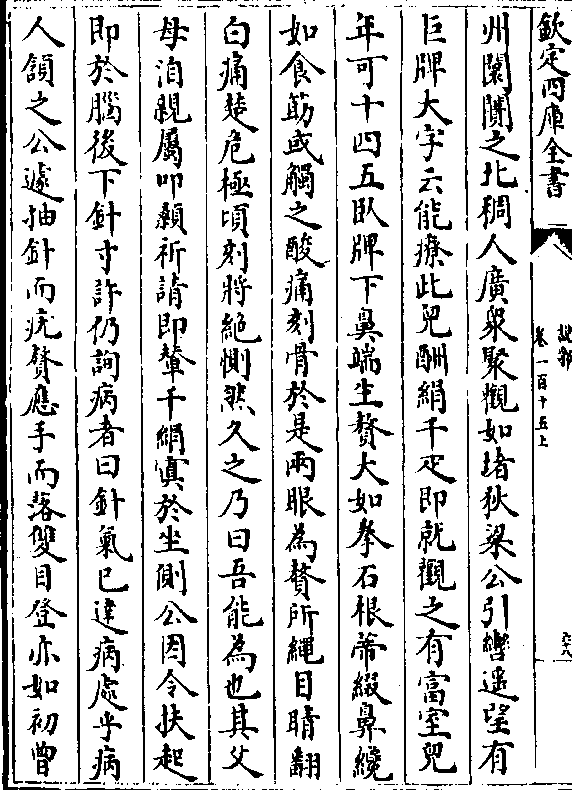 欽定四庫全書
說郛
卷一百十五上
六八
州闤闠之北稠人廣衆聚觀如堵狄梁公引轡遥望有
巨牌大字云能療此兒酬絹千疋即就觀之有富室兒
年可十四五臥牌下鼻端生贅大如拳石根蒂綴鼻纔
如食筯或觸之酸痛刻骨於是兩眼為贅所繩目睛翻
白痛楚危極頃刻將絕惻然久之乃曰吾能為也其父
母洎親屬叩顙祈請即輦千絹寘於坐側公因令扶起
即於腦後下針寸許仍詢病者曰針氣已達病處乎病
人頷之公遽抽針而疣贅應手而落雙目登亦如初曾